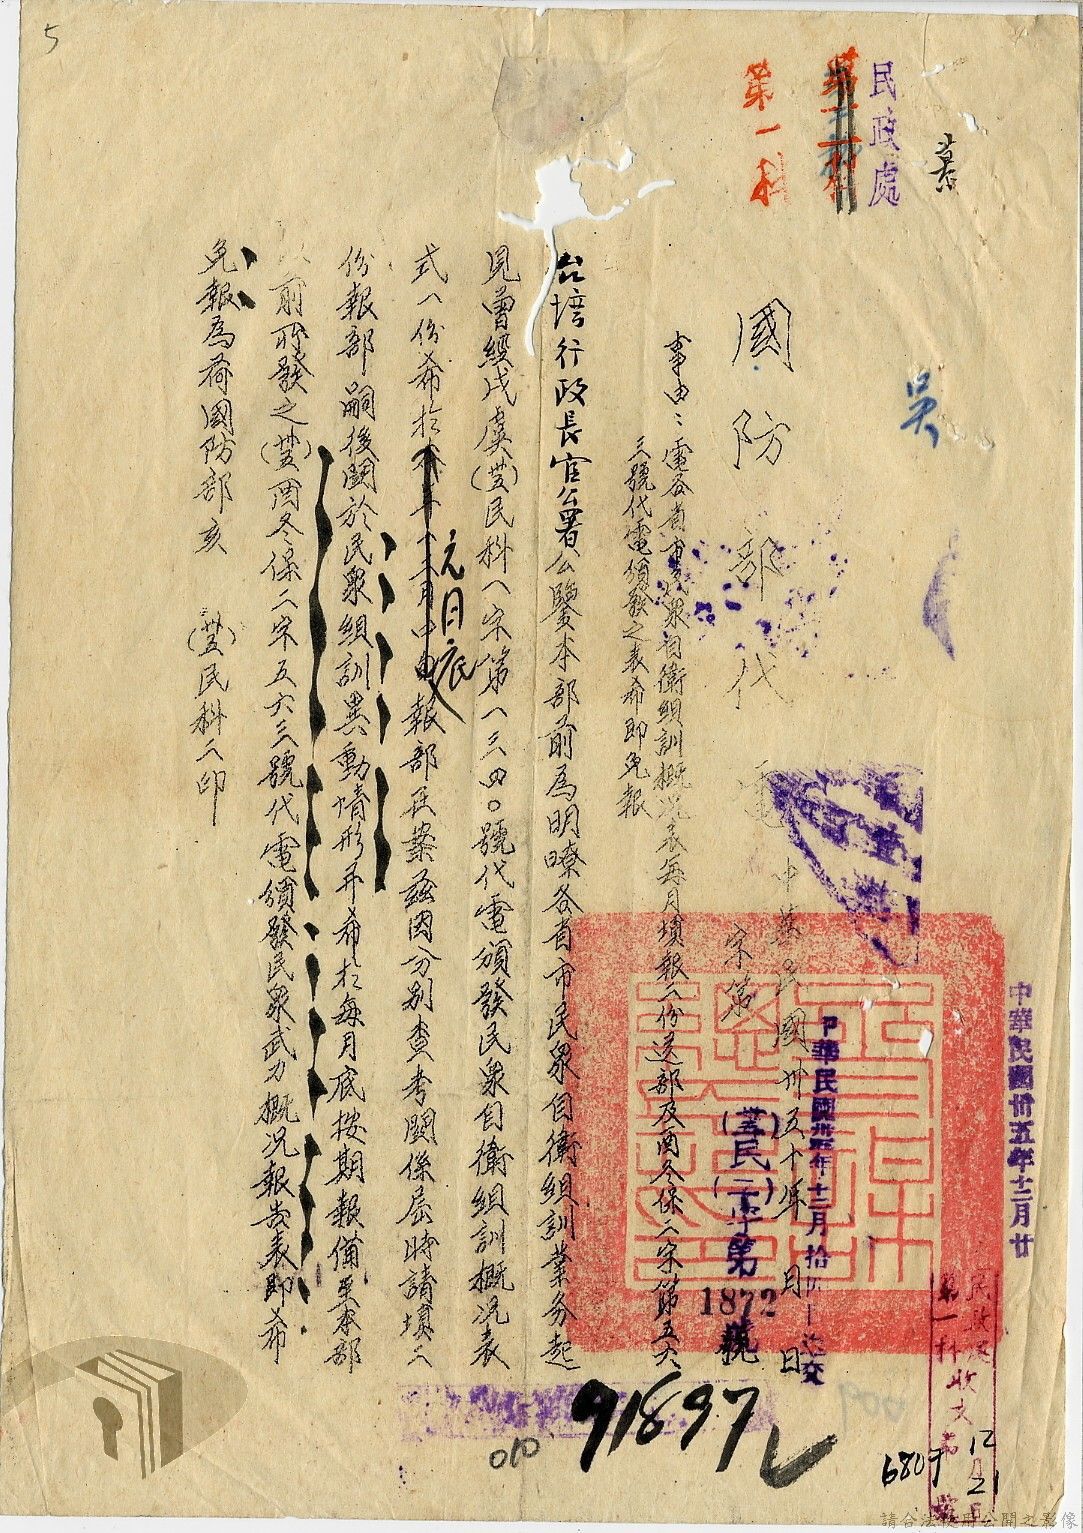 5
民政處
第一科
吳
國防部代電
中華民國卅五年 月 日
中華民國卅五年十二月廿
字第
民二字第
1872
號
事由：電各省市民眾自衛組訓概況表每月填報二份送部及酉冬保二字第五六
三號代電頒發之表希即免報
台灣行政長官公署公鑒本部前為明瞭各省市民眾自衛組訓業務起
見曾經戌虞(丗五)民科一字第一三四〇號代電頒發民眾自衛組訓概況表
式一份希於本年十二月中旬報部在案茲因分別查考關係屆時請填二
元月底
份報部嗣後關於民眾組訓異動情形并希於每月底按期報備至本部
以前所發之(丗五)酉冬保二字五六三號代電頒發民眾武力概況報告表即希
免報為荷國防部亥 (丗五)民科二印
民政處
第一科收文
12月21日
6807
91897
010
009
請合法使用公開之影像